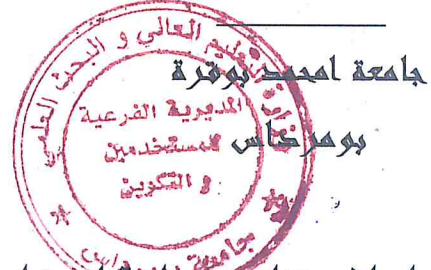 جامعة امحمد بوقرة
بومرداس
وزارة التعليم العالي و البحث العلمي
المديرية الفرعية
للمستخدمين
و التكوين
جامعة بومرداس